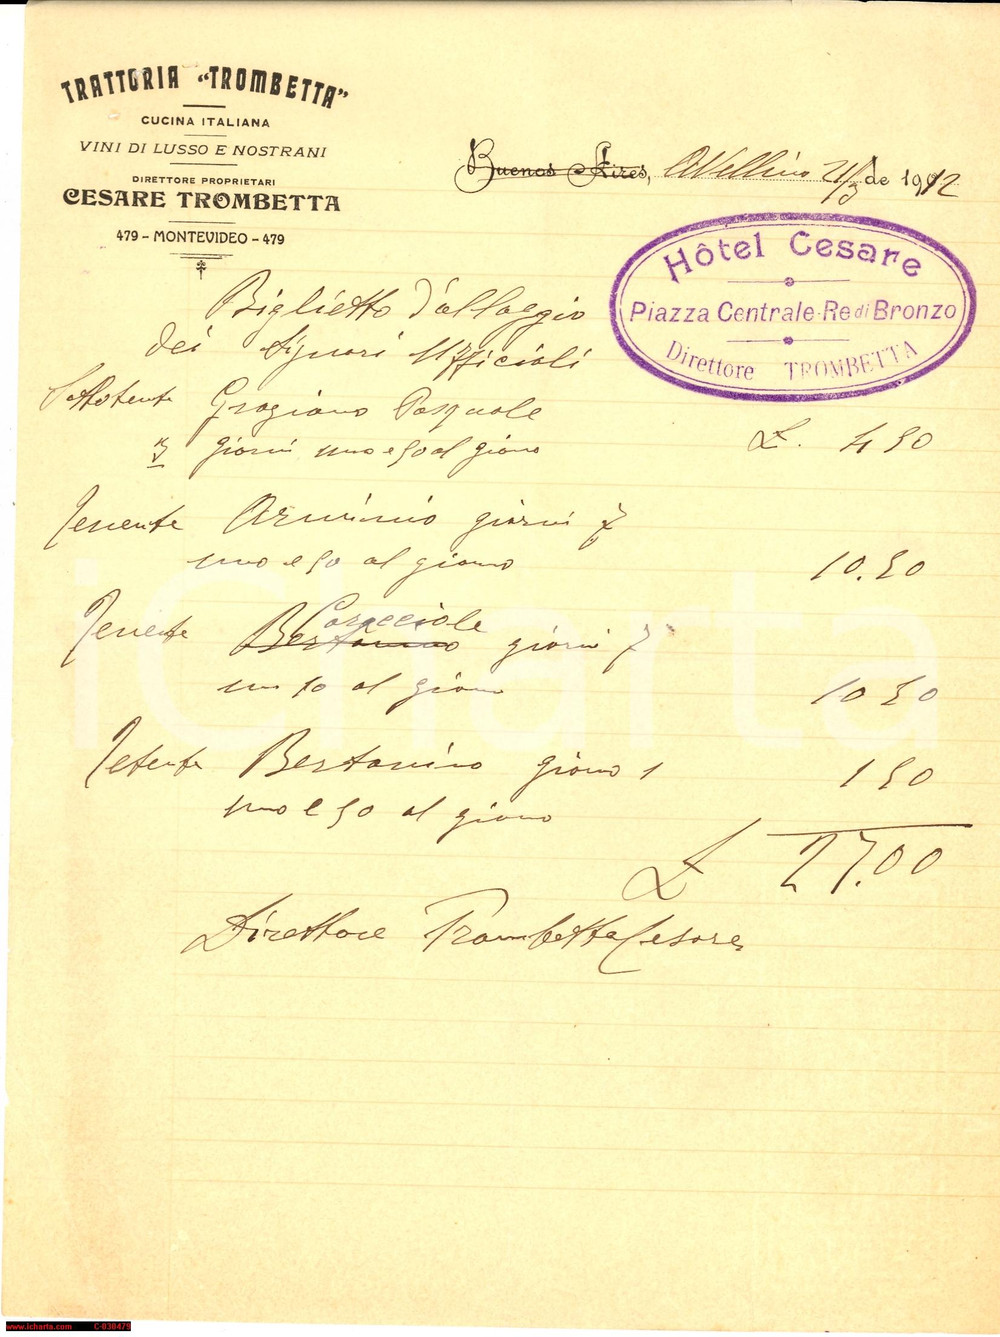 TRATTORIA "TROMBETTA"
CUCINA ITALIANA
VINI DI LUSSO E NOSTRANI
DIRETTORE PROPRIETARI
CESARE TROMBETTA
479 - MONTEVIDEO - 479
Buenos Aires, Avellino 21/3 de 1912
Hôtel Cesare
Piazza Centrale-Re di Bronzo
Direttore TROMBETTA
Biglietto d'alloggio
dei Signori Ufficiali
Sottotente Graziano Pasquale
3 giorni uno e 50 al giorno £. 4 50
Tenente Arminio giorni 7
uno e 50 al giorno 10.50
Caracciole
Tenente Bertonino giorni 7
un 50 al giorno 10 50
Tetente Bertonino giorno 1 1 50
uno e 50 al giorno
£ 27.00
Direttore Trombetta Cesare
iCharta
www.icharta.com C-030479